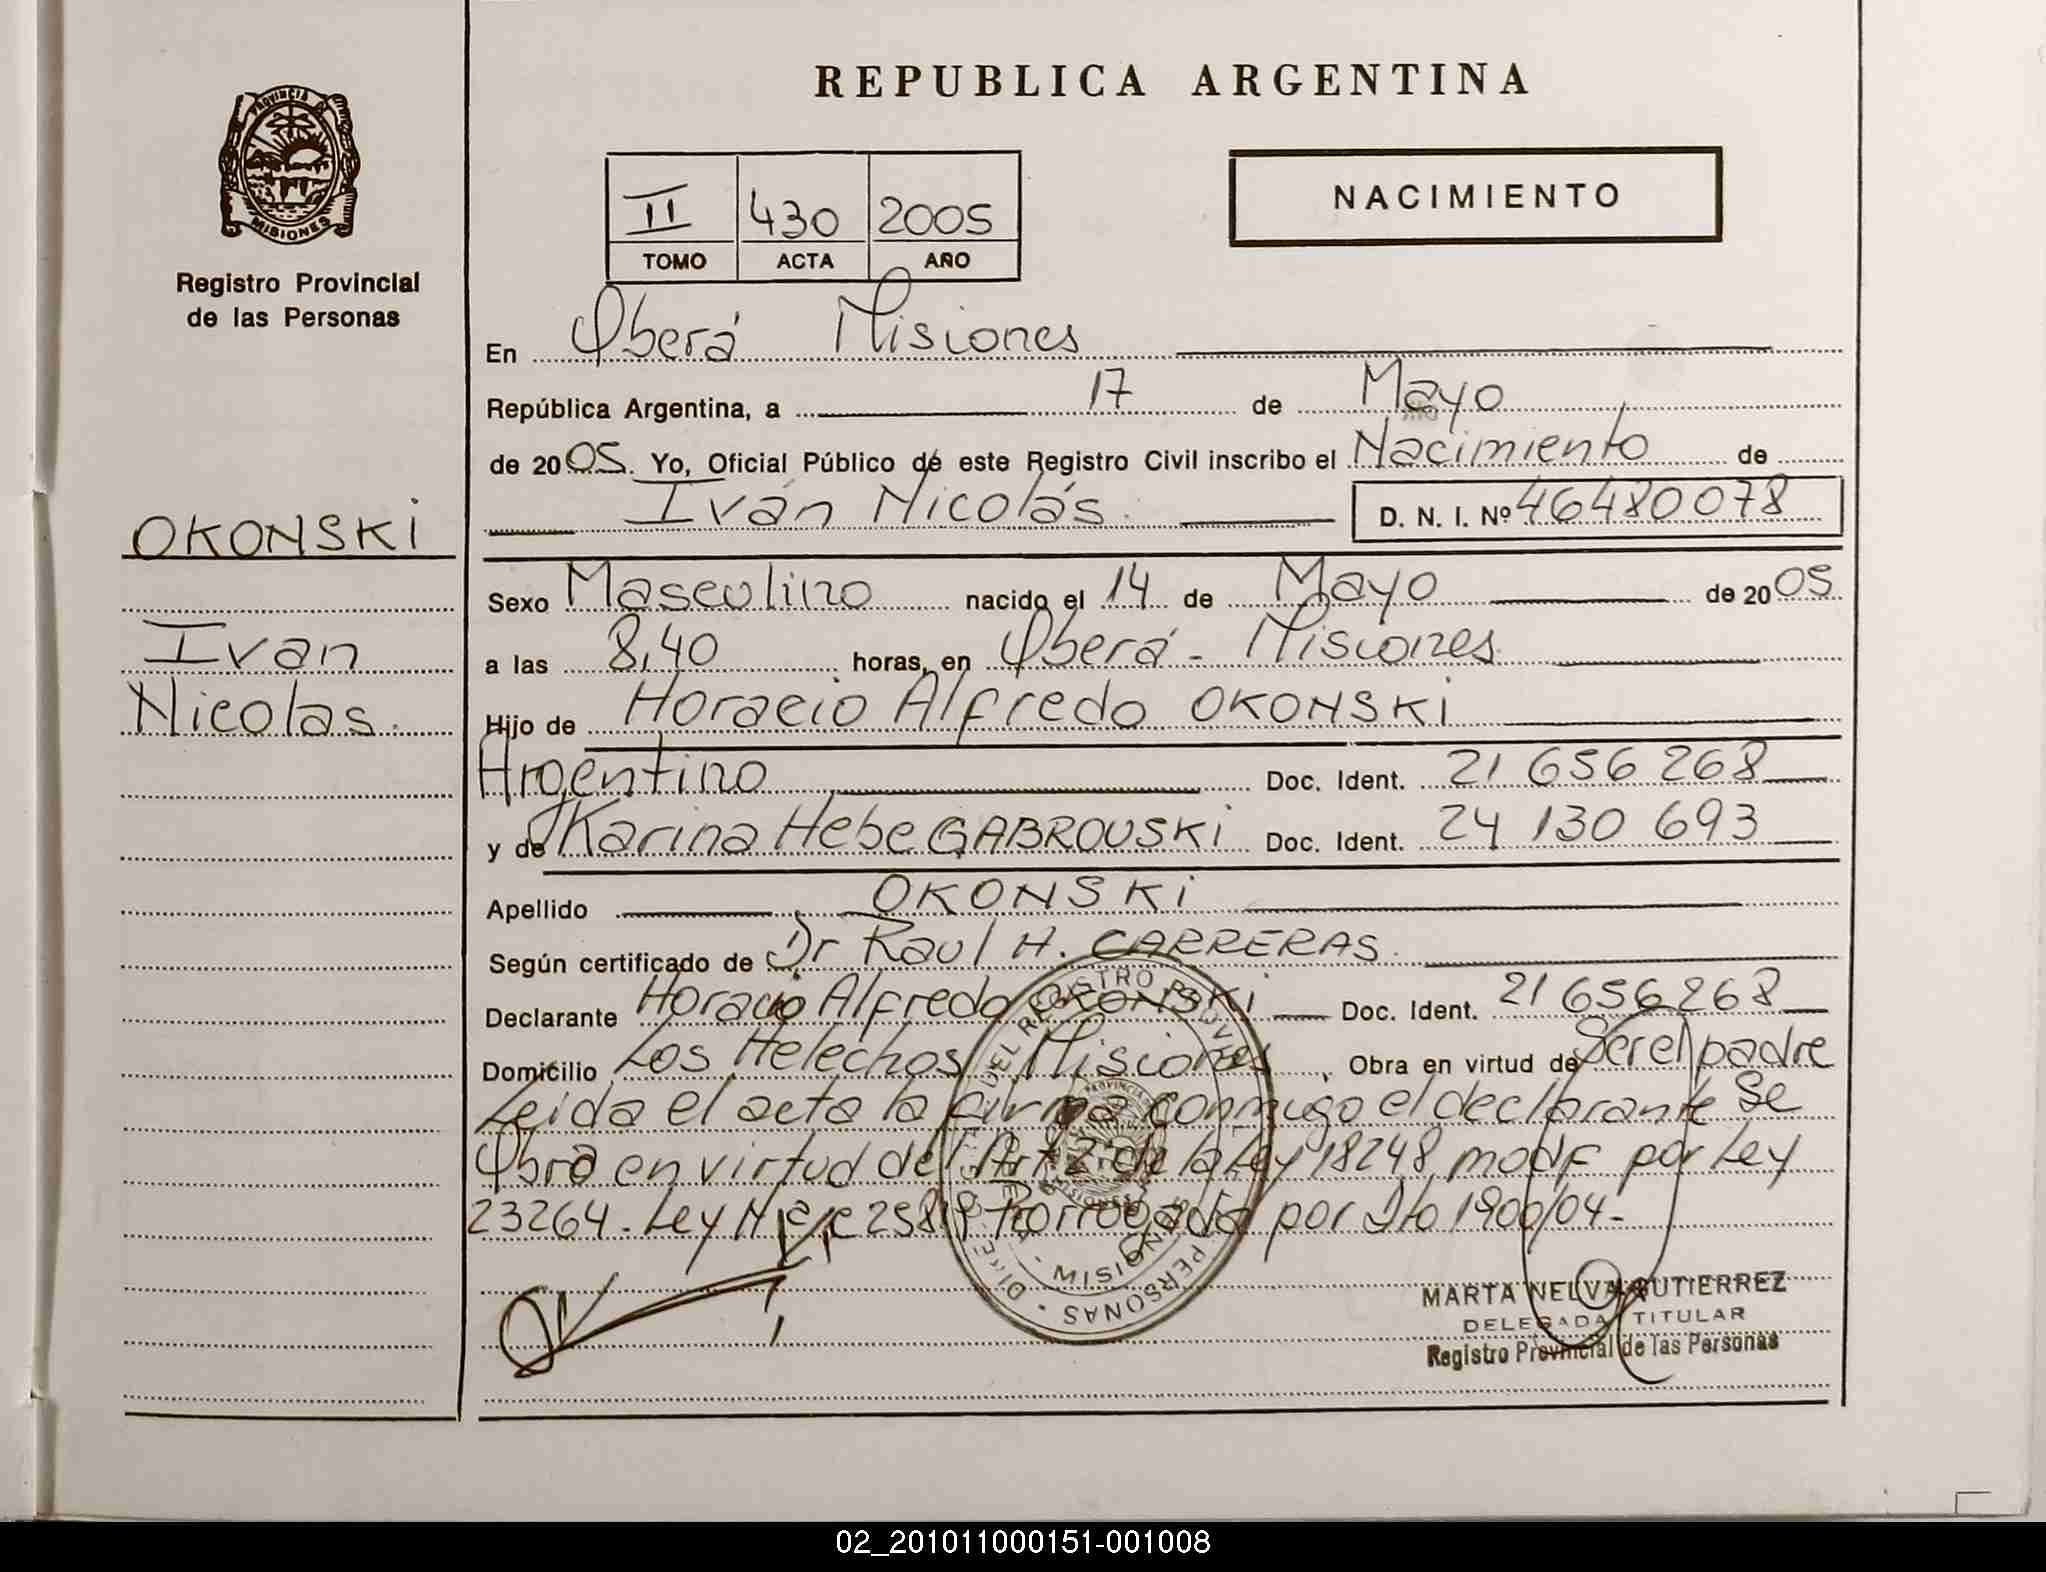 PROVINCIA DE
MISIONES
Registro Provincial
de las Personas
OKONSKI
Ivan
Nicolas.
REPUBLICA ARGENTINA
II 430 2005
TOMO ACTA AÑO
NACIMIENTO
En Oberá Misiones
República Argentina, a 17 de Mayo
de 2005. Yo, Oficial Público de este Registro Civil inscribo el Nacimiento de
Iván Nicolás. D. N. I. Nº 46480078
Sexo Masculino nacido el 14 de Mayo de 2005
a las 8,40 horas, en Oberá - Misiones
Hijo de Horacio Alfredo OKONSKI
Argentino Doc. Ident. 21 656 268
y de Karina Hebe GABROUSKI Doc. Ident. 24 130 693
Apellido OKONSKI
Según certificado de Dr Raul H. CARRERAS.
Declarante Horacio Alfredo OKONSKI Doc. Ident. 21 656 268
Domicilio Los Helechos Misiones. Obra en virtud de Ser el padre
Leida el acta la firma conmigo el declarante Se
Obra en virtud del Art 2 de la Ley 18248 modf por Ley
23264. Ley Nac 25819 Prorrogada por Dto 1900/04-
MISIONES
MARTA NELVA GUTIERREZ
DELEGADA TITULAR
Registro Provincial de las Personas
02_201011000151-001008